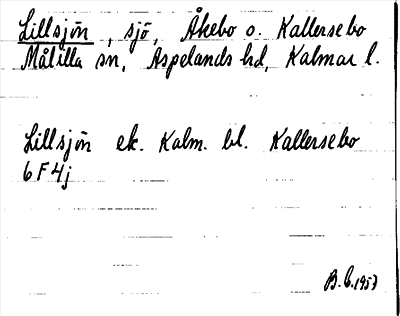 Lillsjön, sjö, Åkebo o. Kallersebo
Målilla sn, Aspelands hd, Kalmar l.
Lillsjön ek. Kalm. bl. Kallersebo
6 F 4j
B.C. 1957